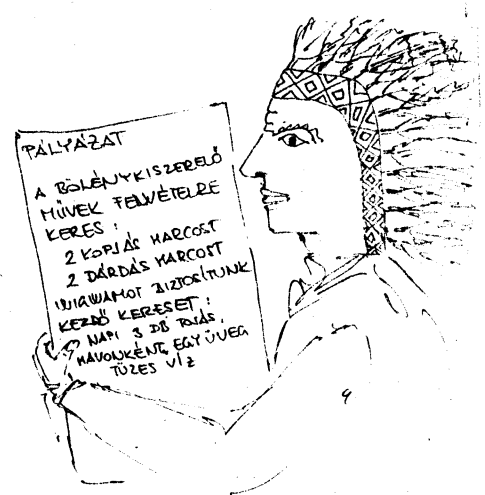 PÁLYÁZAT
A BÖLÉNYKISZERELŐ
MŰVEK FELVÉTELRE
KERES:
2 KOPJÁS HARCOST
2 DÁRDÁS HARCOST
WIGWAMOT BIZTOSÍTUNK
KEZDŐ KERESET:
NAPI 3 DB TOJÁS,
HAVONKÉNT EGY ÜVEG
TÜZES VÍZ